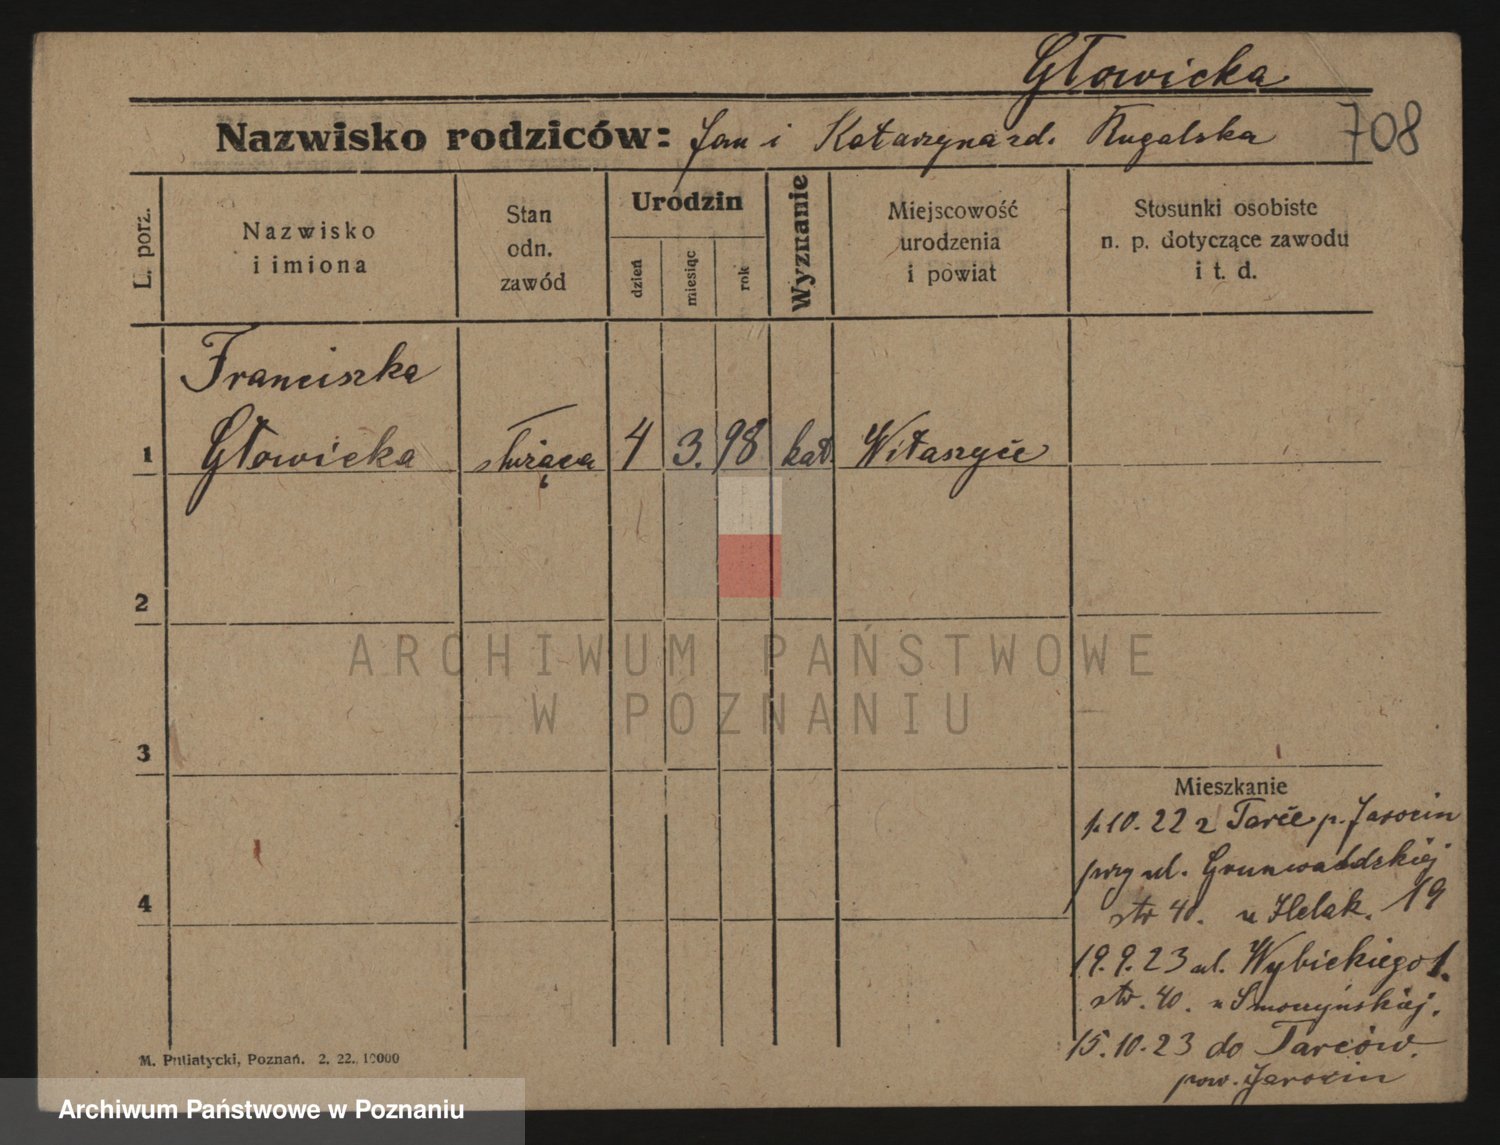 Głowicka
Nazwisko rodziców: Jan i Katarzyna zd. Rugalska 708
L. porz.
Nazwisko
i imiona
Stan
odn.
zawód
Urodzin
dzień
miesiąc
rok
Wyznanie
Miejscowość
urodzenia
i powiat
Stosunki osobiste
n. p. dotyczące zawodu
i t. d.
Franciszka
1 Głowicka służąca 4 3. 98 kat. Witaszyce
2
ARCHIWUM PAŃSTWOWE
W POZNANIU
3
Mieszkanie
1.10.22 z Tarce p. Jarocin
przy ul. Grunwaldzkiej
4
str 40. u Helak. 19
19.9.23 ul. Wybickiego 1.
str. 40. u Smoczyńskiej.
15.10.23 do Tarców.
pow. Jarocin
M. Putiatycki, Poznań. 2. 22. 10000
Archiwum Państwowe w Poznaniu